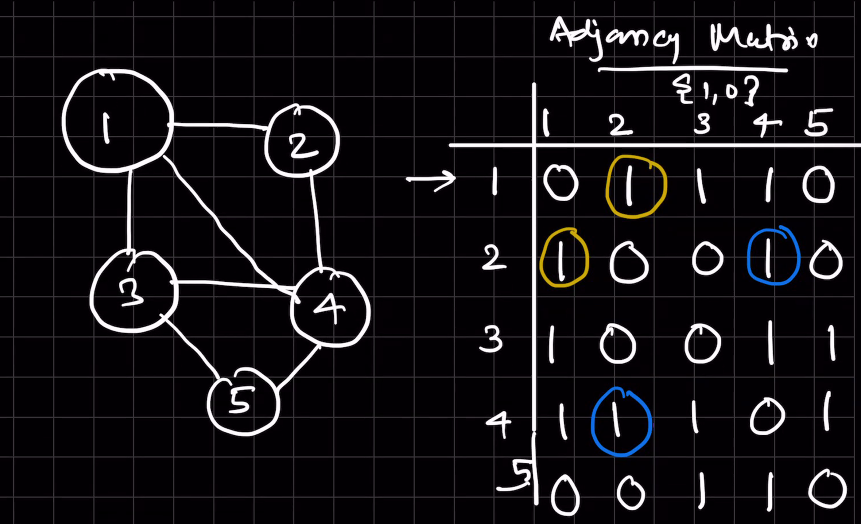 Adjancy Matrix
{1,0}
1 2 3 4 5
→ 1 0 1 1 1 0
2 1 0 0 1 0
3 1 0 0 1 1
4 1 1 1 0 1
5 0 0 1 1 0
1
2
3
4
5